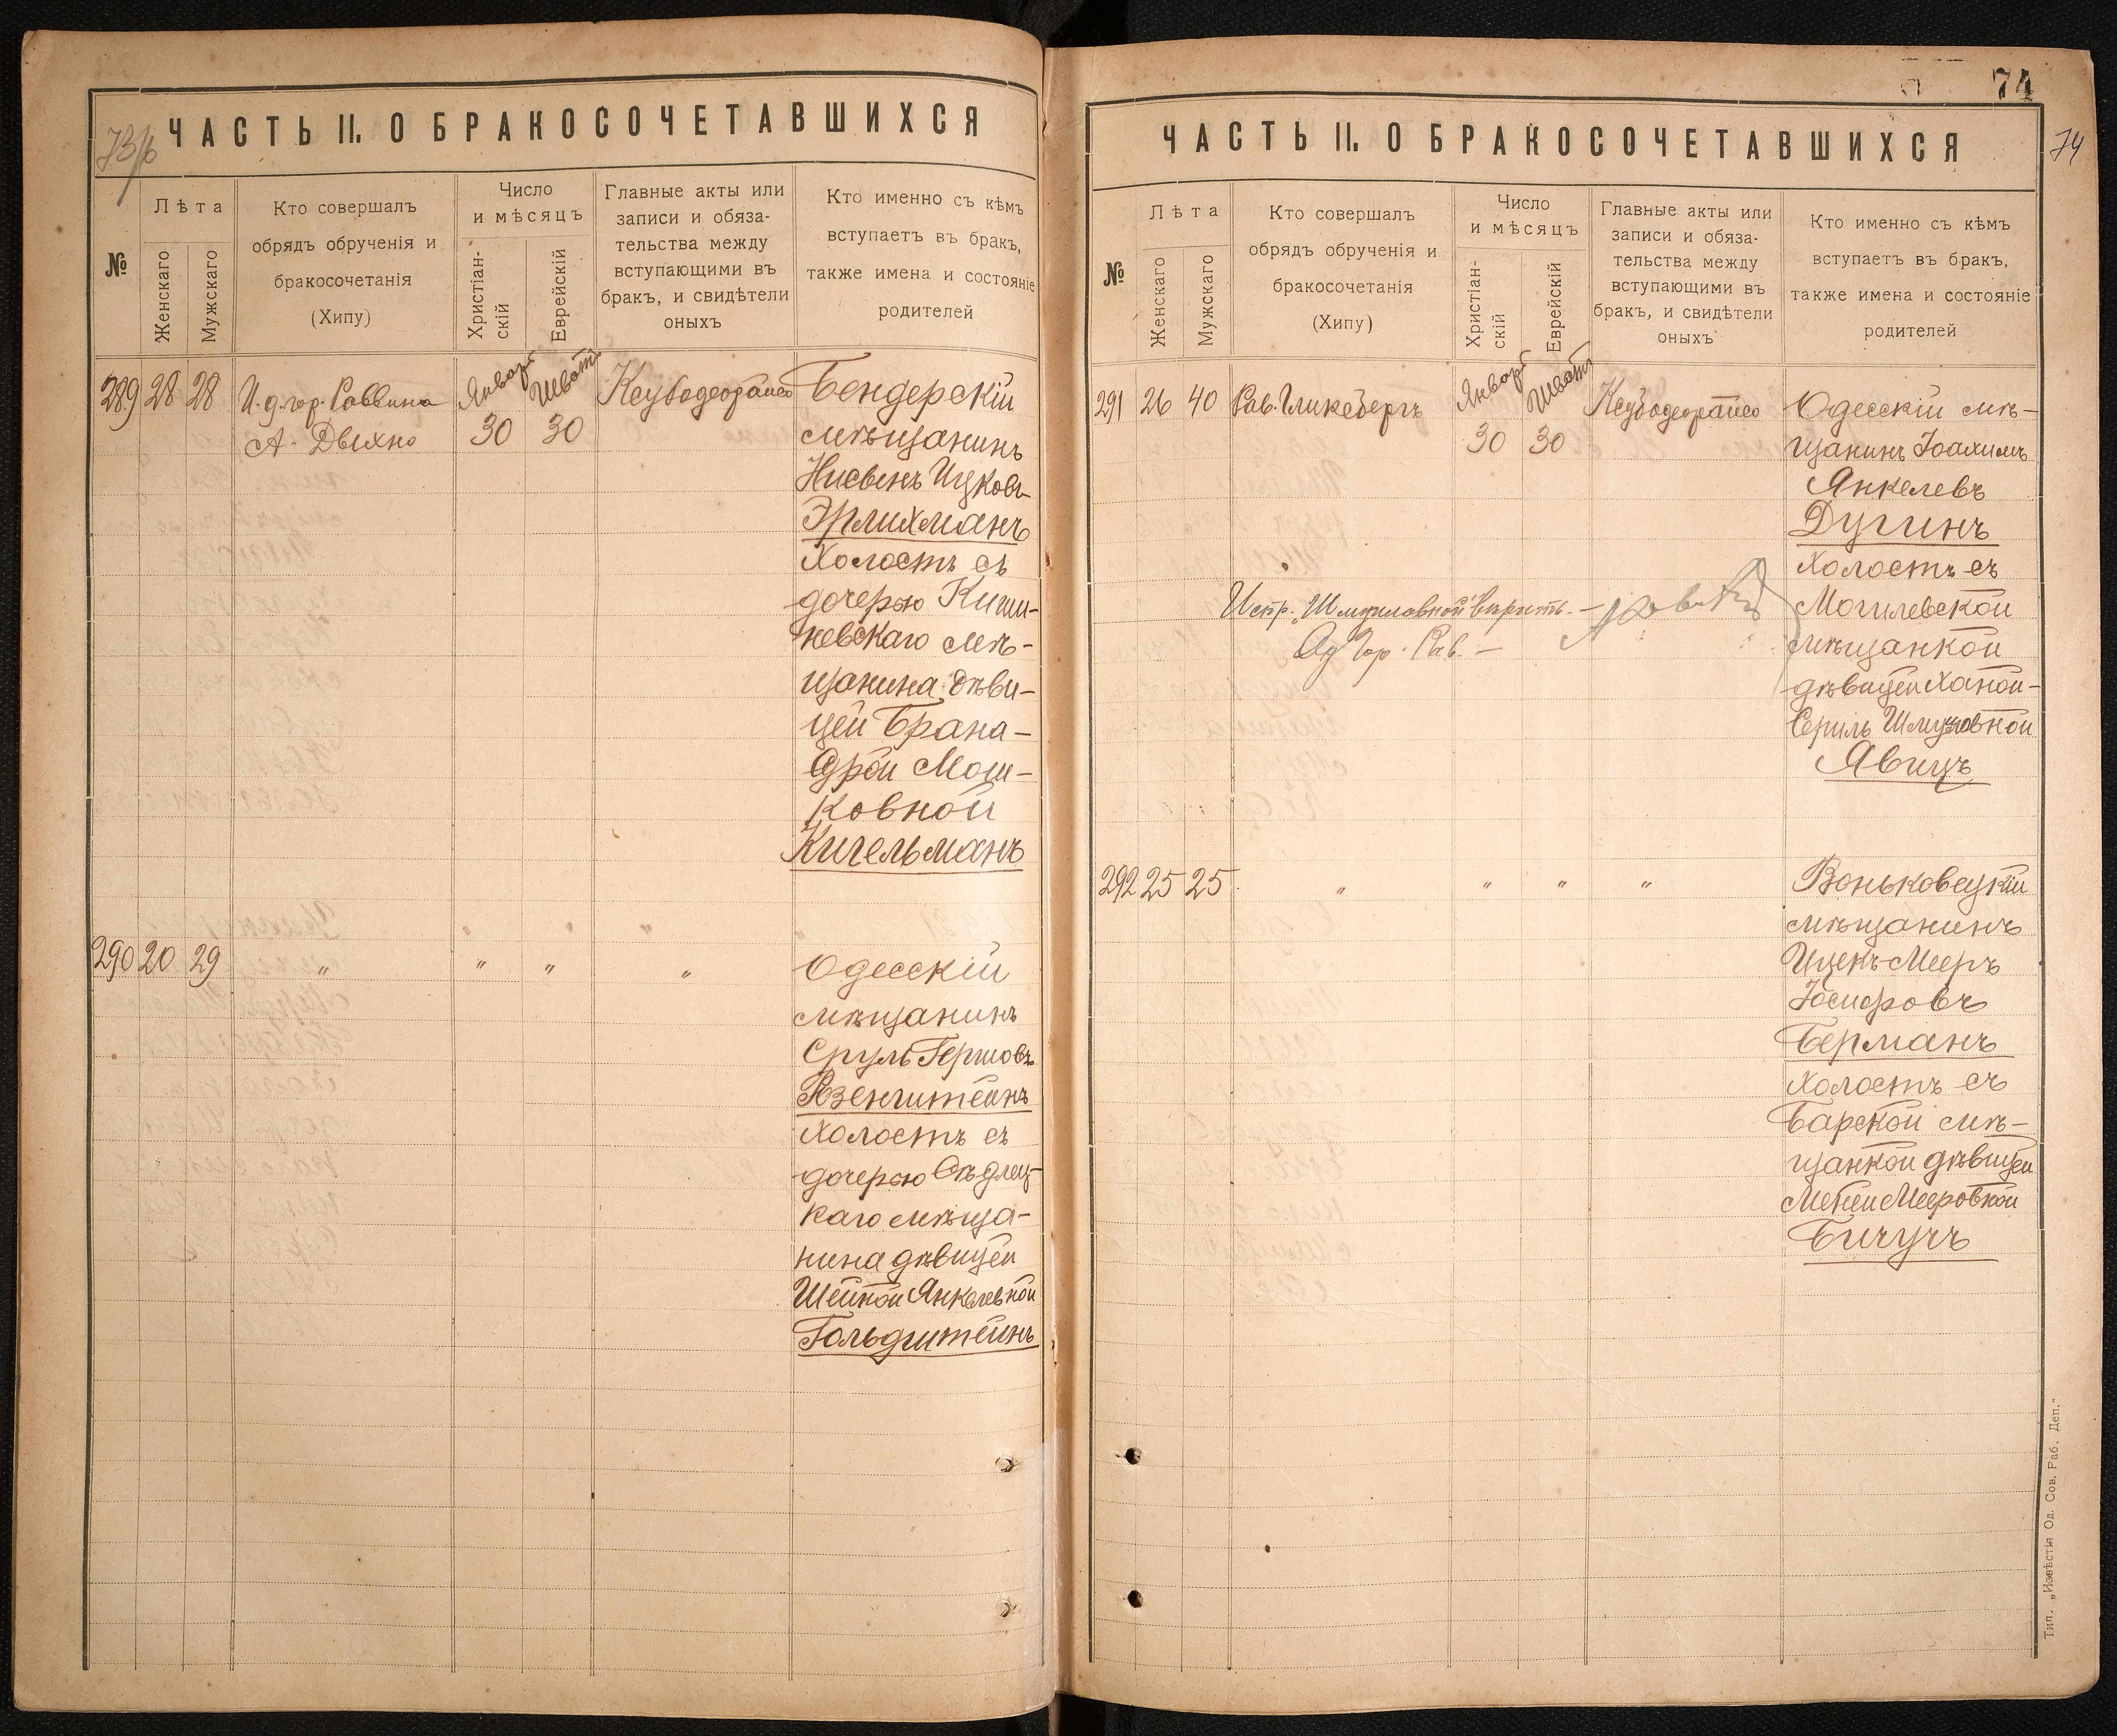 73/б
ЧАСТЬ II. О БРАКОСОЧЕТАВШИХСЯ
№
Лѣта
Женскаго
Мужскаго
Кто совершалъ
обрядъ обрученія и
бракосочетанія
(Хипу)
Число
и мѣсяцъ
Христіан-
скій
Еврейскій
Главные акты или
записи и обяза-
тельства между
вступающими въ
бракъ, и свидѣтели
оныхъ
Кто именно съ кѣмъ
вступаетъ въ бракъ,
также имена и состояніе
родителей
289 28 28
И. д. гор. Раввина
А. Двихно
Январь
30
Шватъ
30
Бендерскій
мѣщанинъ
Ицковъ
Эрлихманъ
Холостъ съ
дочерью Киши-
невскаго мѣ-
щанина дѣви-
цей Брана-
Мош-
ковной
Кигельманъ
290 20 29
" " " "
Одесскій
мѣщанинъ
Сруль Гершовъ
Розенштейнъ
Холостъ съ
дочерью
каго мѣща-
нина дѣвицей
Шейной Янкелевной
Гольдштейнъ
74
74
ЧАСТЬ II. О БРАКОСОЧЕТАВШИХСЯ
№
Лѣта
Женскаго
Мужскаго
Кто совершалъ
обрядъ обрученія и
бракосочетанія
(Хипу)
Число
и мѣсяцъ
Христіан-
скій
Еврейскій
Главные акты или
записи и обяза-
тельства между
вступающими въ
бракъ, и свидѣтели
оныхъ
Кто именно съ кѣмъ
вступаетъ въ бракъ,
также имена и состояніе
родителей
291 26 40
Рав. Гликсбергъ
Январь
30
Шватъ
30
Одесскій мѣ-
щанинъ Іоахимъ
Янкелевъ
Дугинъ
холостъ съ
Могилевской
мѣщанкой
дѣвицей Ханой-
Серилъ Шмуловной
Явицъ
Испр. „Шмуловной" вѣрить. –
Гор. Рав. –
292 25 25
" " " "
Воньковецкій
мѣщанинъ
Ицекъ-Мееръ
Іосифовъ
Берманъ
Холостъ съ
Барской мѣ-
щанкой дѣвицей
Мееровной
Бичучъ
Тип. „Извѣстія Од. Сов. Раб. Деп."